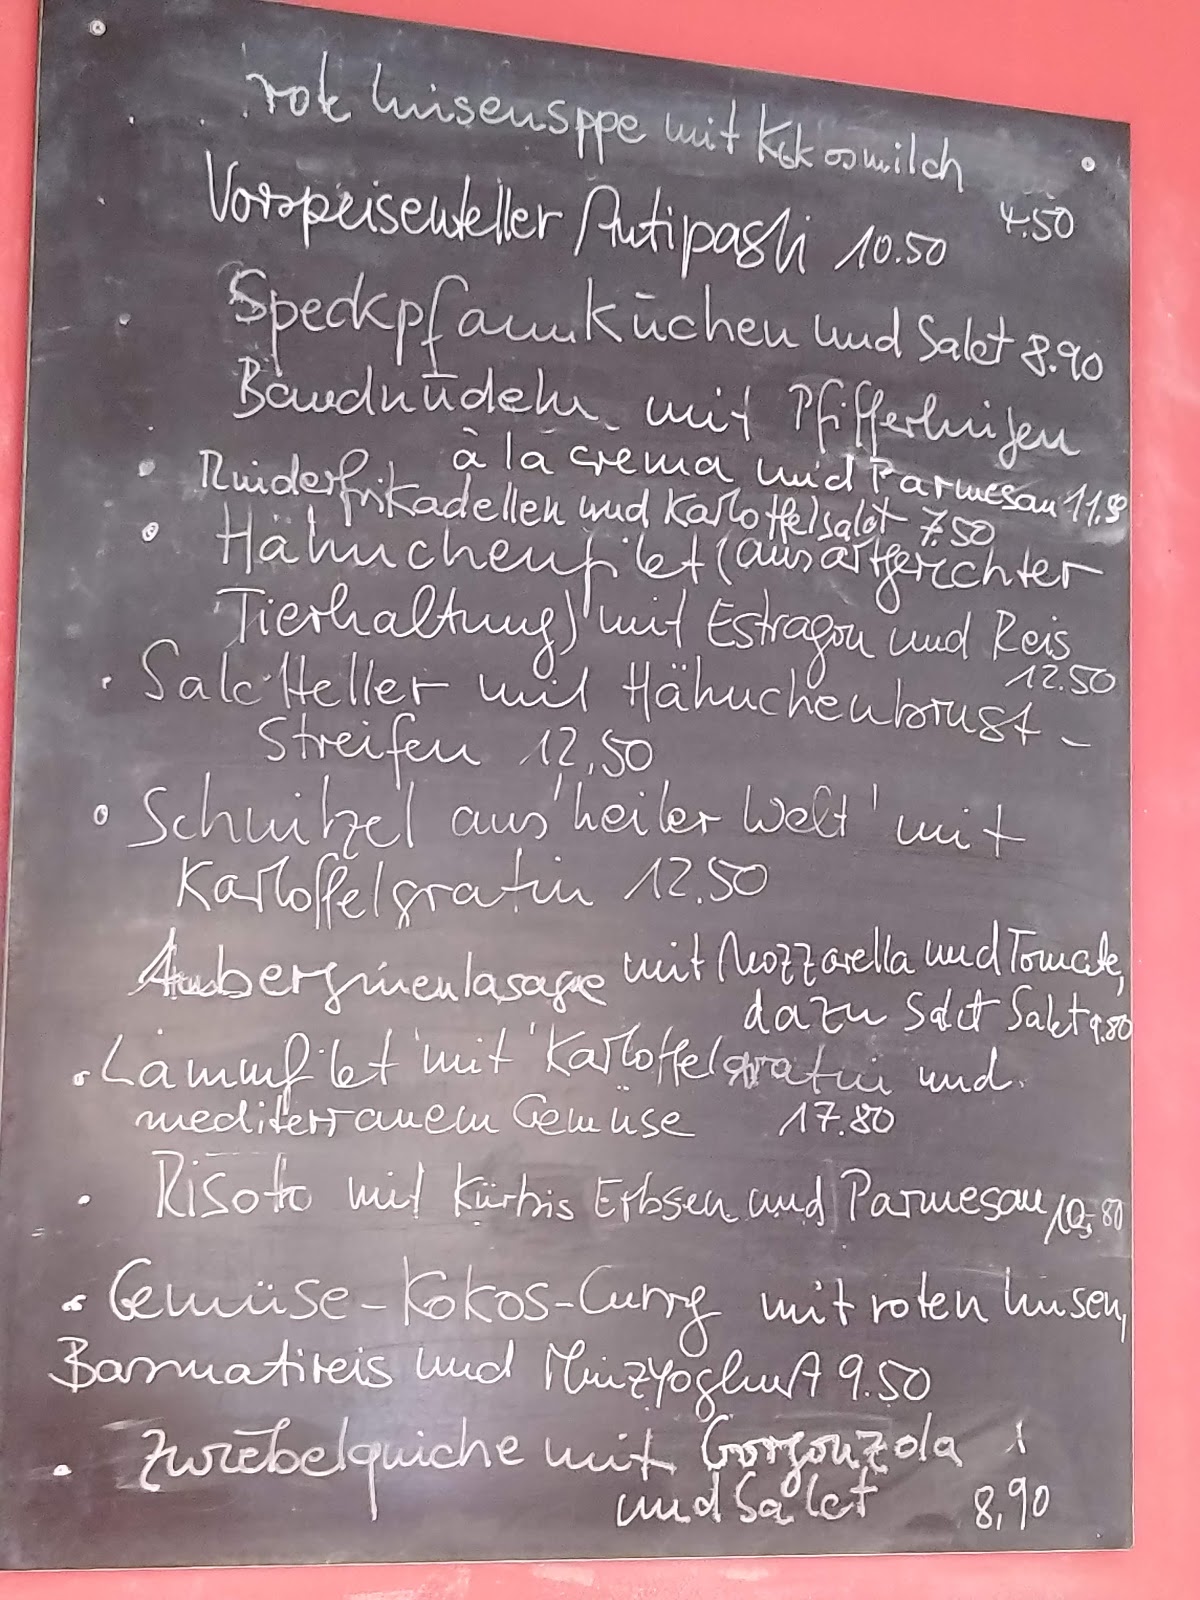 rote Linsensppe mit Kokosmilch
4.50
Vorspeisenteller Antipasti 10.50
Speckpfannküchen und Salat 8.90
Bandnudeln mit Pfifferlingen
à la crema und Parmesan 11.50
Rinderfrikadellen und Kartoffelsalat 7.50
Hähnchenfilet (aus artgerechter
Tierhaltung) mit Estragon und Reis
12.50
Salatteller mit Hähnchenbrust-
Streifen 12,50
Schnitzel aus 'heiler Welt' mit
Kartoffelgratin 12.50
Auberginenlasagne mit Mozzarella und Tomate,
dazu Salat Salat 9.80
Lammfilet mit Kartoffelgratin und
mediterranem Gemüse 17.80
Risoto mit Kürbis Erbsen und Parmesan 10,80
Gemüse-Kokos-Curry mit roten Linsen,
Basmatireis und Minzyoghurt 9.50
Zwiebelquiche mit Gorgonzola
und Salat 8,90